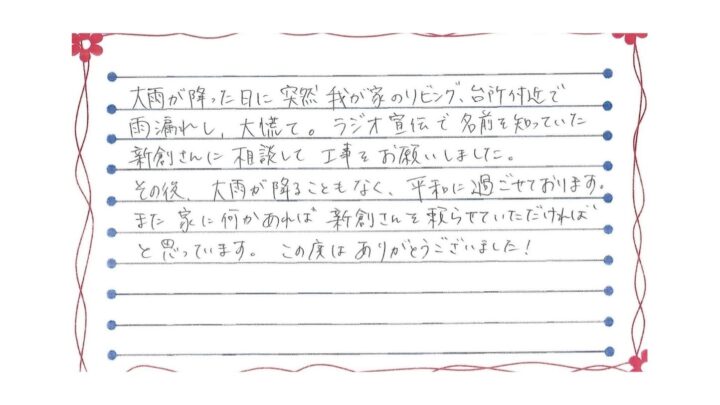 大雨が降った日に突然我が家のリビング、台所付近で
雨漏れし、大慌て。ラジオ宣伝で名前を知っていた
新創さんに相談して工事をお願いしました。
その後、大雨が降ることもなく、平和に過ごせております。
また家に何かあれば新創さんを頼らせていただければ
と思っています。この度はありがとうございました!